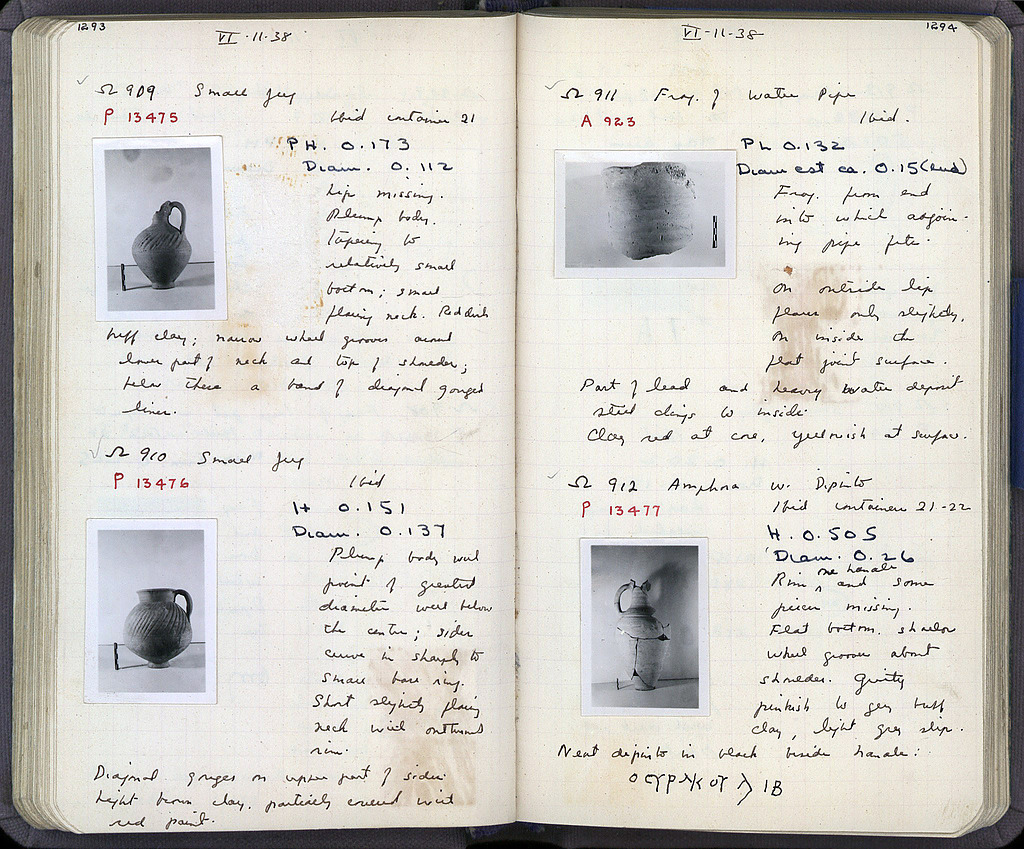 1293
VI-11-38
Ω 909 Small Jug
P 13475
Ibid container 21
PH. 0.173
Diam. 0.112
Lip missing.
Plump body.
tapering to
relatively small
bottom; small
flaring neck. Reddish
buff clay; narrow wheel grooves around
lower part of neck and top of shoulder;
below these a band of diagonal gouged
lines.
Ω 910 Small Jug
P 13476
Ibid
H 0.151
Diam. 0.137
Plump body with
point of greatest
diameter well below
the centre; sides
curve in sharply to
small base ring.
Short slightly flaring
neck with outturned
rim.
Diagonal gouges on upper part of sides.
Light brown clay, partially covered with
red paint.
1294
VI-11-38
Ω 911 Frag. of Water Pipe
A 923
Ibid.
PL 0.132
Diam est ca. 0.15 (end)
Frag. from end
into which adjoin-
ing pipe fits.
On outside lip
flares only slightly,
on inside the
flat joint surface.
Part of lead and heavy water deposit
still clings to inside.
Clay red at core, yellowish at surface.
Ω 912 Amphora w. Dipinto
P 13477
Ibid containers 21-22
H. 0.505
Diam. 0.26
one handle
Rim ^ and some
pieces missing.
Flat bottom. shallow
wheel grooves about
shoulder. Gritty
pinkish to grey buff
clay, light grey slip.
Neat dipinto in black beside handle: